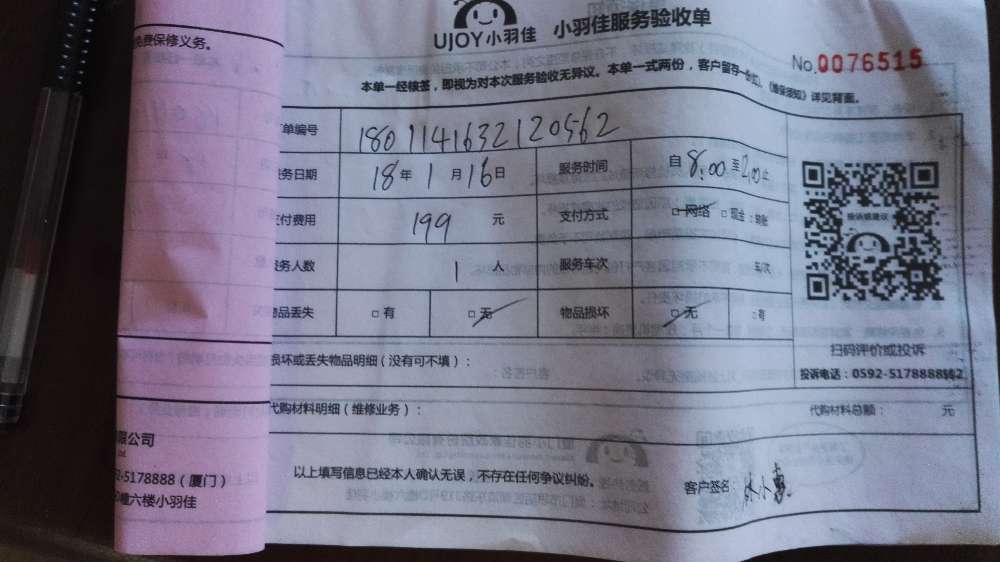 免费保修义务。
UJOY小羽佳 小羽佳服务验收单
No.0076515
本单一经核签，即视为对本次服务验收无异议。本单一式两份，客户留存一份，《维保须知》详见背面。
单编号 1801141632120562
务日期 18年1月16日 服务时间 自8:00至2:00止
付费用 199元 支付方式 □网络 □现金 □转账
务人数 1人 服务车次 车/次
物品丢失 □有 □无 物品损坏 □无 □有
投诉或建议
扫码评价或投诉
投诉电话：0592-5178888
损坏或丢失物品明细（没有可不填）：
代购材料明细（维修业务）： 代购材料总额： 元
限公司
Ltd.
92-5178888（厦门）
幢六楼小羽佳
以上填写信息已经本人确认无误，不存在任何争议纠纷。
客户签名：